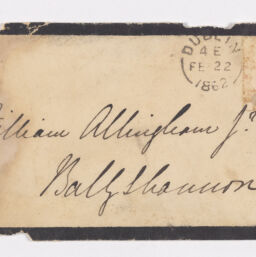 DUBLIN
4 E
FE 22
1862
William Allingham Jr
Ballyshannon